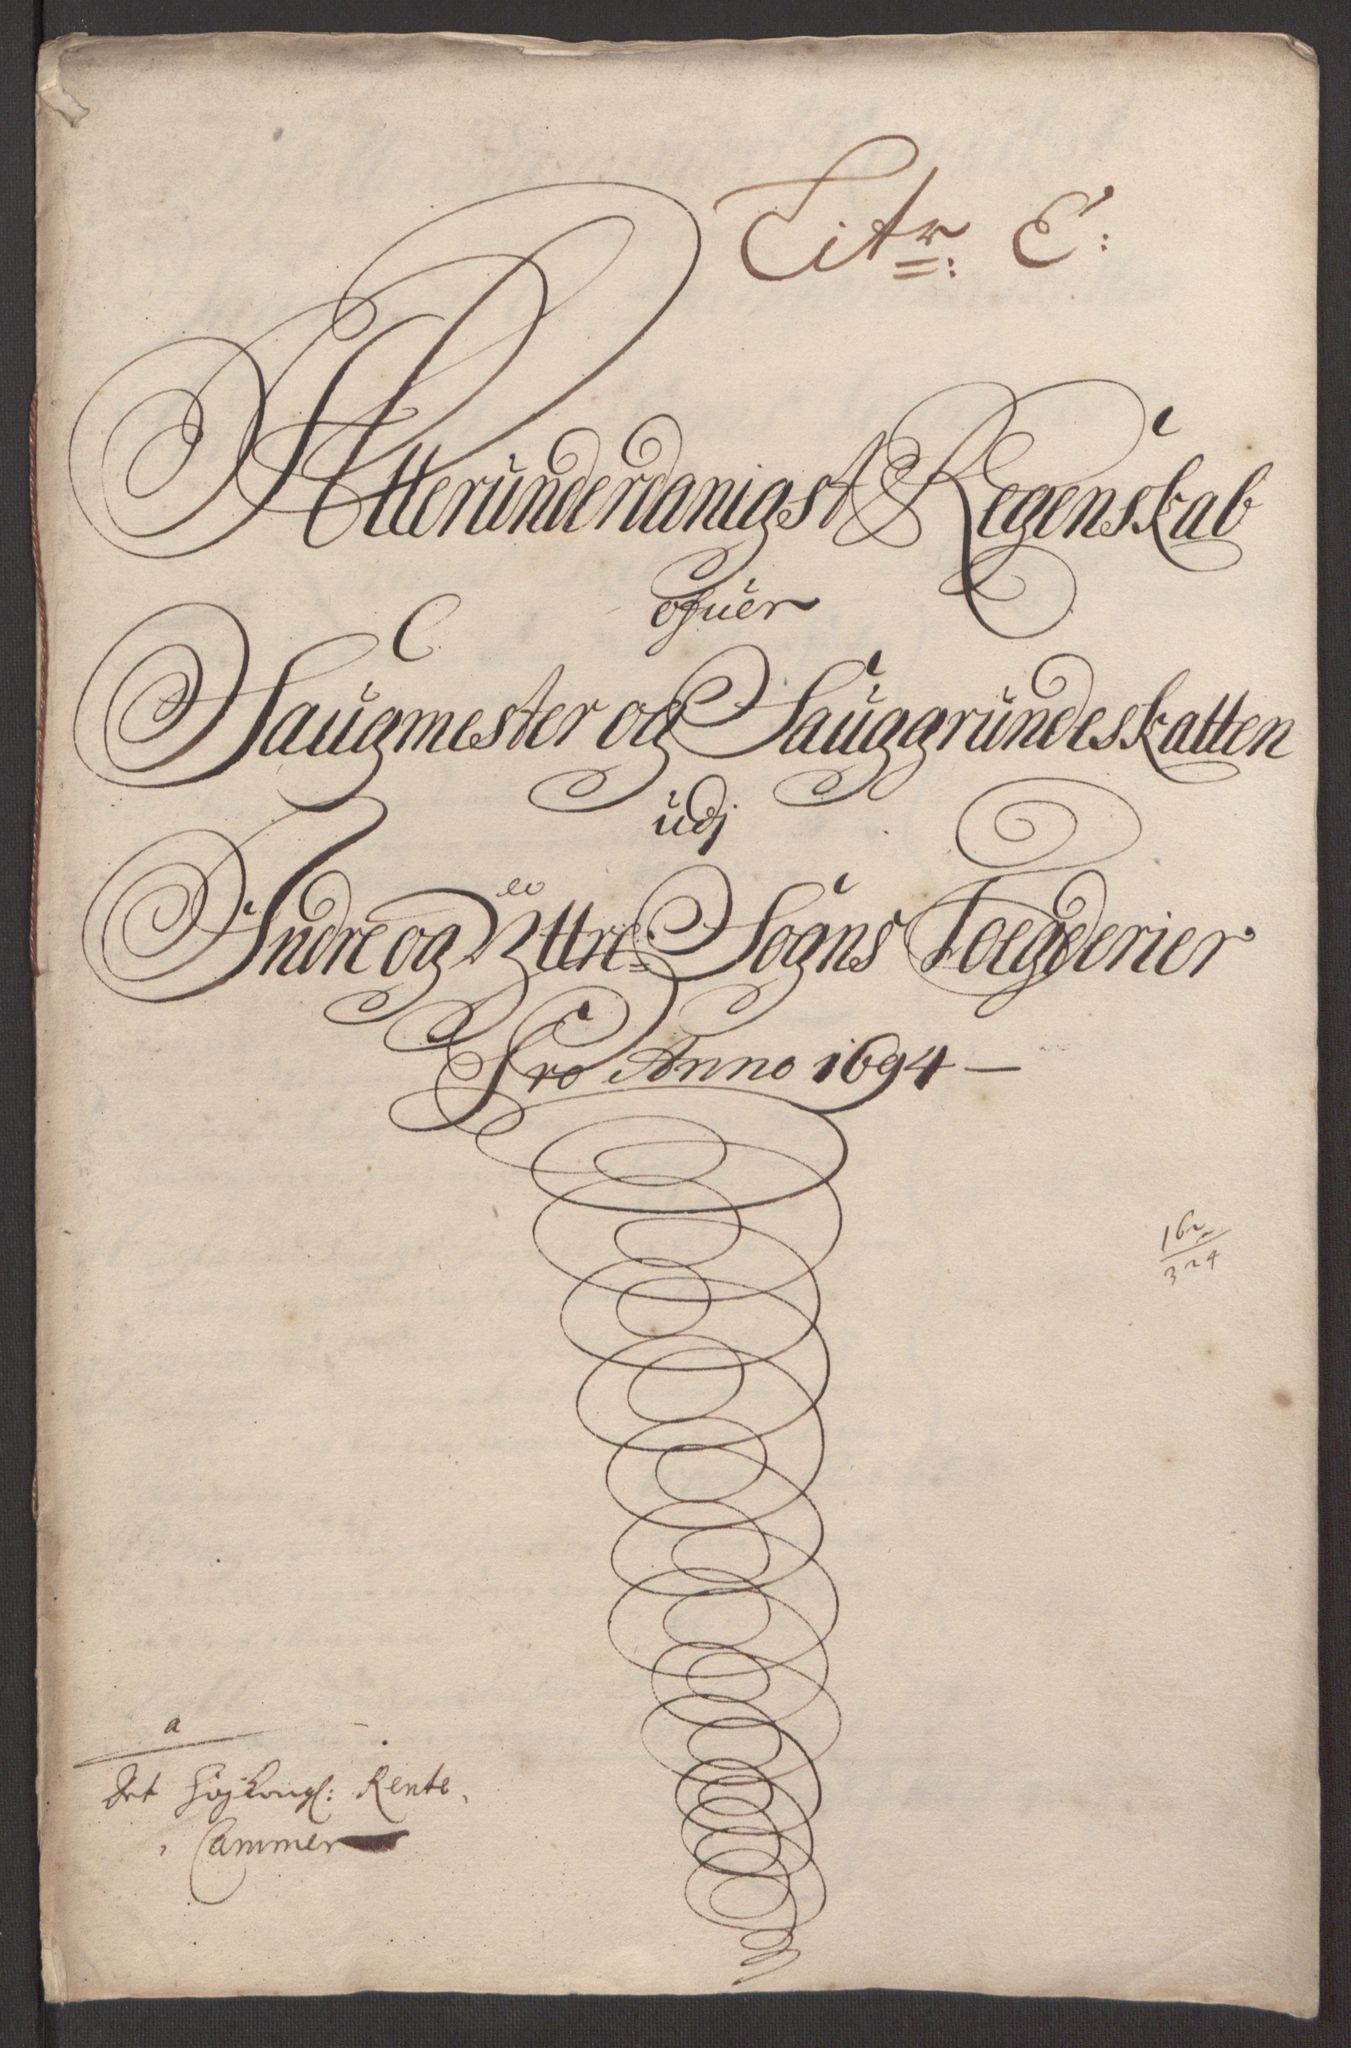 Litr: E:
Allerunderdanigst Regenskab
ofuer
Saugmester og Sauggrundeskatten
udj
Indre og Ÿttre Sogns Foegderier
Pro Anno 1694 —
162
324
a
Det Høj Kongl: Rente
Cammer